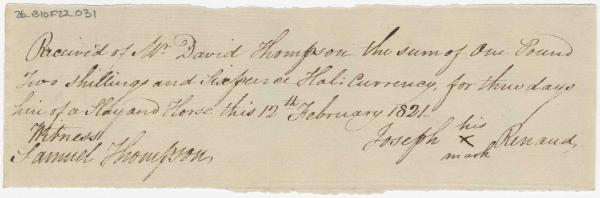 26-B10F22_031
Received of Mr. David Thompson the sum of One Pound
Two Shillings and Sixpence Hal: Currency, for three days
hire of a Slay and Horse this 12th February 1821
Witness
Samuel Thompson
Joseph his x mark Renaud